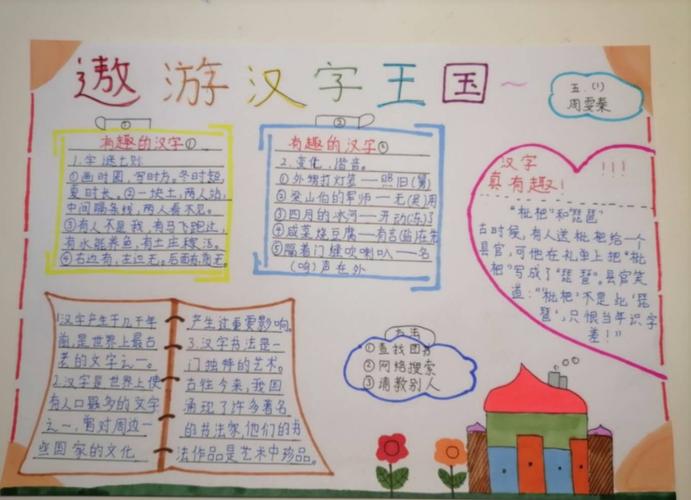 遨游汉字王国~
五.(1)
周雯蓁
①
有趣的汉字①
1.字谜七则
①画时圆,写时方,冬时短,
夏时长。②一块土,两人站,
中间隔条线,两人看不见。
③有人不是我,有马飞跑过,
有水能养鱼,有土庄稼活。
④右边有,左边无。后面有
②
有趣的汉字②
2.变化、谐音。
①外甥打灯笼——照旧(舅)
军师——无(吴)用
③四月的冰河——开动(冻)了
④咸菜烧豆腐——有言(盐)在先
⑤隔着门缝吹喇叭——名
(鸣)声在外
汉字
真有趣!
!!!
"枇杷"和"琵琶"
古时候,有人送枇杷给一个
县官,可他在礼单上把"枇
杷"写成了"琵琶"。县官笑
道:"'枇杷'不是此'琵
琶',只恨当年识字
差!"
1.汉字产生于几千年
前,是世界上最古
老的文字之一。
2.汉字是世界上使
用人口最多的文字
之一,曾对周边一
些国家的文化
产生过重要影响。
3.汉字书法是一
门独特的艺术。
古往今来,我国
涌现了许多著名
的书法家,他们的书
法作品是艺术中珍品。
办法
①查找图书
②网络搜索
③请教别人